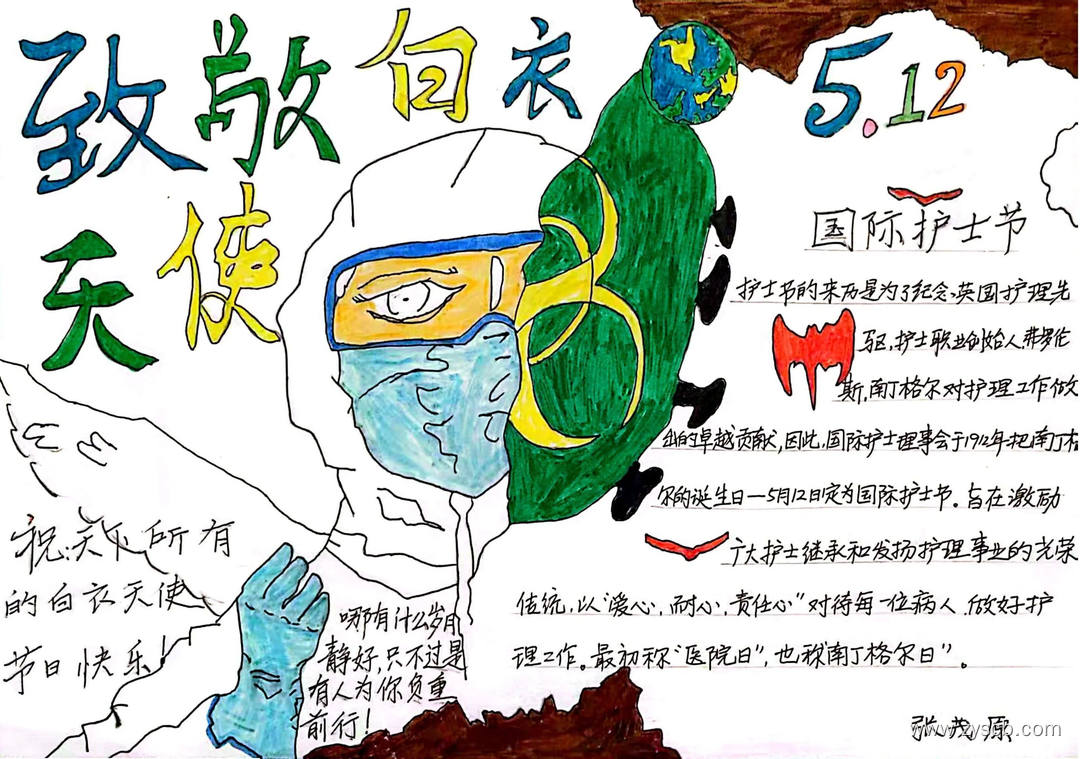 致敬白衣
天使
5.12
国际护士节
护士节的来历是为了纪念,英国护理先
驱,护士职业创始人弗罗伦
斯,南丁格尔对护理工作做
出的卓越贡献,因此,国际护士理事会于1912年把南丁格
尔的诞生日一5月12日定为国际护士节。旨在激励
广大护士继承和发扬护理事业的光荣
传统,以"爱心,耐心,责任心"对待每一位病人,做好护
理工作。最初称"医院日",也称南丁格尔日"。
祝:天下所有
的白衣天使
节日快乐!
哪有什么岁月
静好,只不过是
有人为你负重
前行!
张茂原